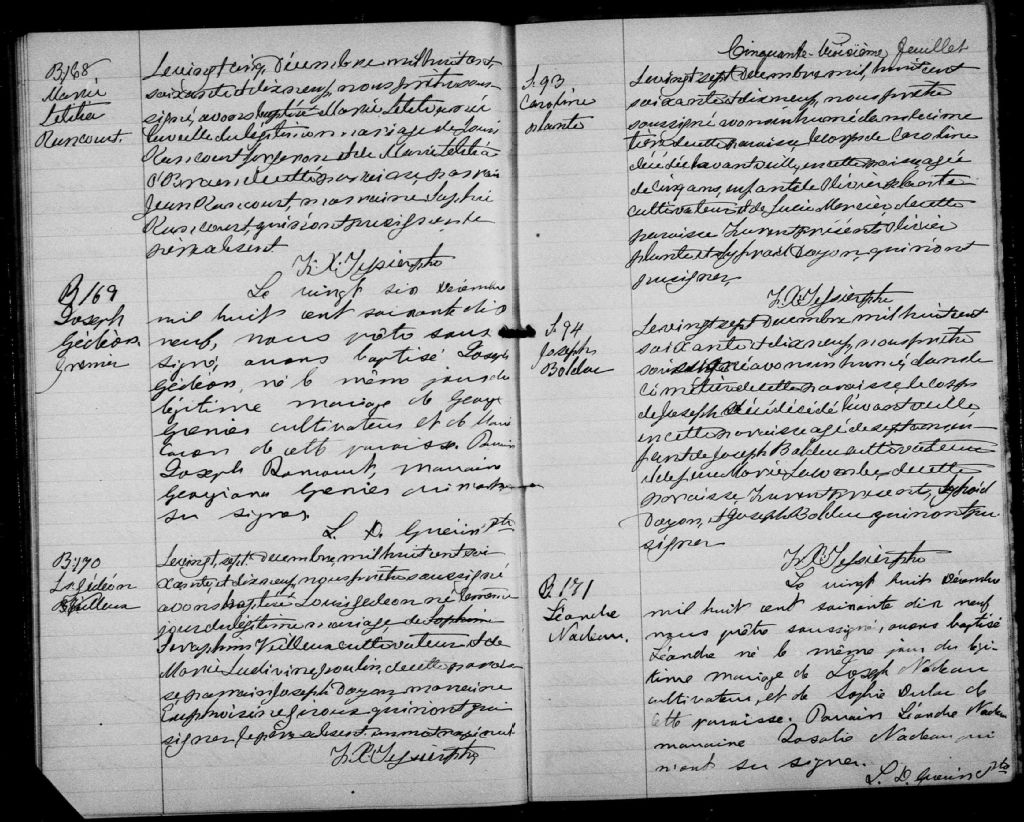 B168
Marie
Letitia
Rancourt.
Le vingt cinq Décembre mil huit cent
soixante et dix neuf, nous prêtre sous-
signé, avons baptisé Marie Letitia née
la veille du légitime mariage de Louis
Rancourt forgeron et de Marie Letitia
O'Brien de cette paroisse, parrain
Jean Rancourt, marraine Sophie
Rancourt, qui n'ont pu signer le
père absent
F.X. Tessier ptre
B169
Joseph
Gédéon
Grenier
Le vingt six Décembre
mil huit cent soixante dix
neuf, nous prêtre sous-
signé, avons baptisé Joseph
Gédéon, né le même jour du
légitime mariage de George
Grenier cultivateur et de Marie
de cette paroisse. Parrain
Joseph Rancourt, marraine
Georgiana Grenier qui n'ont
su signer
L. D. Guérin ptre
B170
Ls. Gédéon
Veilleux
Le vingt sept Décembre, mil huit cent soi-
xante et dix neuf, nous prêtre soussigné
avons baptisé Louis Gédéon né le même
jour du légitime mariage de
Séraphin Veilleux cultivateur et de
Marie Ludivine Poulin, de cette parois-
se parrain Joseph Doyon, marraine
Euphroisine Giroux qui n'ont pu
signer, le père absent.
F.X. Tessier ptre
Cinquante-troisième feuillet
S.93
Caroline
Plante
Le vingt sept Décembre mil huit cent
soixante et dix neuf, nous prêtre
soussigné avons inhumé dans le cime-
tière de cette paroisse le corps de Caroline
décédée l'avant veille, en cette paroisse agée
de cinq ans, enfant de Olivier Plante
cultivateur et de Lucie Mercier de cette
paroisse Furent présents Olivier
Plante et Doyon qui n'ont
pu signer
F.X. Tessier ptre
S.94
Joseph
Bolduc
Le vingt sept Decembre mil huit cent
soixante et dix neuf, nous prêtre
soussigné avons inhumé, dans le
cimetière de cette paroisse le corps
de Joseph décédé l'avant veille
en cette paroisse agé de sept ans, en-
fant de Joseph Bolduc cultivateur
et de feu Marie Lacombe, de cette
paroisse, Furent présents,
Doyon, et Joseph Bolduc qui n'ont pu
signer
F.X. Tessier ptre
B171
Léandre
Nadeau.
Le vingt huit Décembre
mil huit cent soixante dix neuf
nous prêtre soussigné, avons baptisé
Léandre né le même jour du légi-
time mariage de Joseph Nadeau
cultivateur, et de Sophie Dulac de
cette paroisse. Parrain Léandre Nadeau
marraine Rosalie Nadeau qui
n'ont su signer.
L. D. Guérin ptre